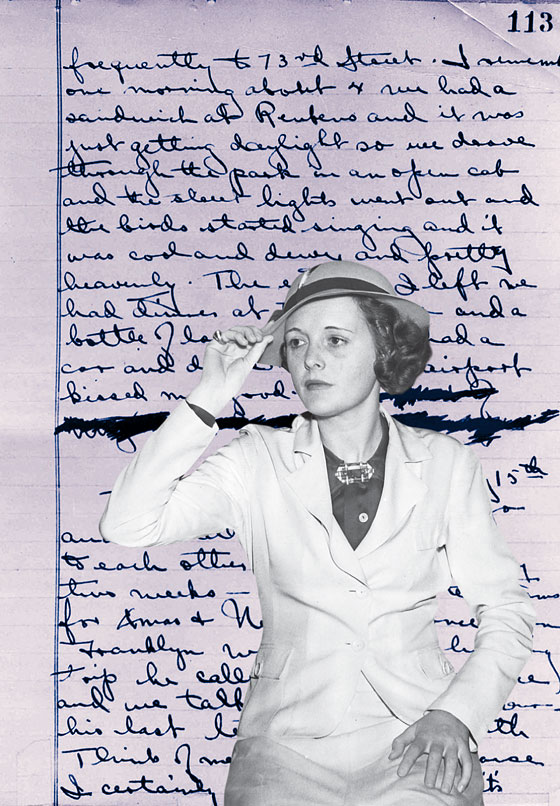 113
frequently to 73rd Street. I remem
one morning about 4 we had a
sandwich at Reubens and it was
just getting daylight so we drove
through the park in an open cab
and the street lights went out and
the birds started singing and it
was cool and dewy and pretty
heavenly. The e I left we
had dinner at and a
bottle of had a
car and airport
kissed good.
15th
to each other
two weeks —
for Xmas & N
Franklyn
trip he call
and we talk
his last le
Think of me
I certainly